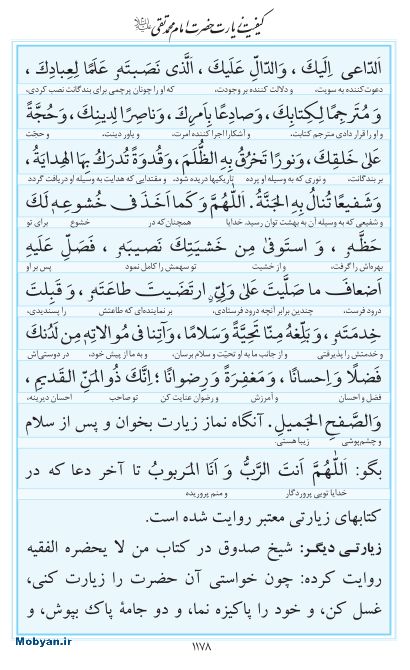 کیفیت زیارت حضرت امام محمد تقی علیه السلام
اَلدّاعى اِلَيكَ ، وَالدّالِّ عَلَيكَ ، اَلَّذى نَصَبتَهُ عَلَمًا لِعِبادِكَ ،
دعوت‌کننده به سویت، و دلالت کننده بر وجودت، که او را چونان پرچمی برای بندگانت نصب کردی،
وَ مُتَرجِمًا لِكِتابِكَ ، وَصادِعًا بِاَمرِكَ ، وَناصِرًا لِدينِكَ ، وَ حُجَّةً
و او را قرار دادی مترجم کتابت، و آشکارا اجرا کننده امرت، و یاور دینت، و حجت
عَلىٰ خَلقِكَ ، وَنورًا تَخرُقُ بِهِ الظُّلَمَ ، وَقُدوَةً تُدرَكُ بِهَا الهِدايَةُ ،
بر بندگانت، و نوری که به وسیله او پرده تاریکیها دریده شود، و مقتدایی که هدایت به وسیله او دریافت گردد
وَشَفيعًا تُنالُ بِهِ الجَنَّةُ . اَللّٰهُمَّ وَكَما اَخَذَ فى خُشوعِهِ لَكَ
و شفیعی که به وسیله آن به بهشت توان رسید. خدایا همچنان‌که در خشوع برای تو
حَظَّهُ ، وَ استَوفىٰ مِن خَشيَتِكَ نَصيبَهُ ، فَصَلِّ عَلَيهِ
بهره‌اش را گرفت، و از خشیت تو سهمش را کامل نمود پس بر او
اَضعافَ ما صَلَّيتَ عَلىٰ وَلِىٍّ ارتَضَيتَ طاعَتَهُ ، وَ قَبِلتَ
درود فرست، چندین برابر آنچه درود فرستادی، بر نماینده‌ای که طاعتش را پسندیدی،
خِدمَتَهُ ، وَبَلِّغهُ مِنّا تَحِيَّةً وَسَلامًا ، وَآتِنا فى مُوالاتِهِ مِن لَدُنكَ
و خدمتش را پذیرفتی و از جانب ما به او تحیّت و سلام برسان، و به ما از پیش خود، در دوستی‌اش
فَضلًا وَاِحسانًا ، وَمَغفِرَةً وَرِضوانًا ؛ اِنَّكَ ذُوالمَنِّ القَديمِ ،
فضل و احسان و آمرزش و رضوان عنایت کن تو صاحب احسان دیرینه،
وَالصَّفحِ الجَميلِ . آنگاه نماز زیارت بخوان و پس از سلام
و چشم‌پوشی زیبا هستی.
بگو: اَللّٰهُمَّ اَنتَ الرَّبُّ وَ اَنَا المَربوبُ تا آخر دعا که در
خدایا تویی پروردگار و منم پروریده
کتابهای زیارتی معتبر روایت شده است.
زیارتـی دیگـر: شیخ صدوق در کتاب من لا یحضره الفقیه
روایت کرده: چون خواستی آن حضرت را زیارت کنی،
غسل کن، و خود را پاکیزه نما، و دو جامهٔ پاک بپوش، و
۱۱۷۸
Mobyan.ir